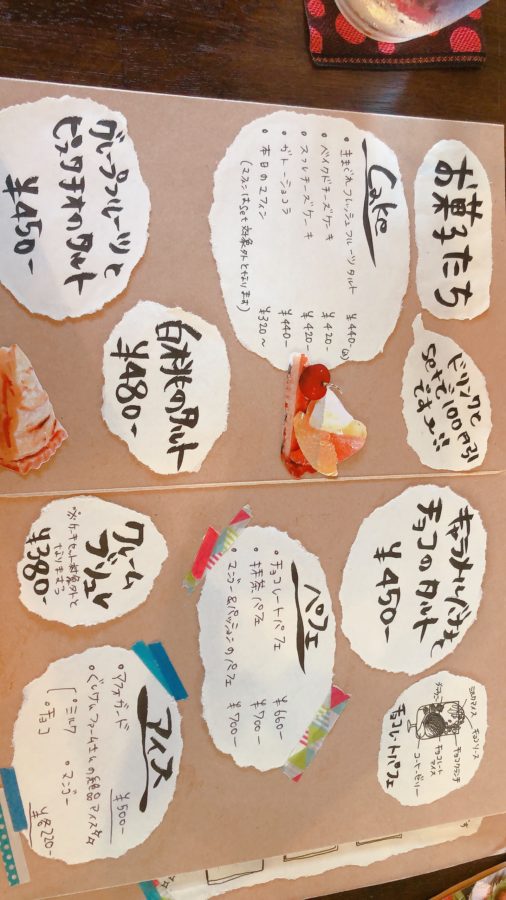 お菓子たち
ドリンクと
setで100円引
です
Cake
・きまぐれフレッシュフルーツタルト ¥440-
・ベイクドチーズケーキ ¥420-
・スフレチーズケーキ ¥420-
・ガトーショコラ ¥440-
・本日のマフィン ¥320~
(マフィンはset対象外となります)
グレープフルーツと
ピスタチオのタルト
¥450-
白桃のタルト
¥480-
キャラメルバナナと
チョコのタルト
¥450-
ミルクアイス
チョコソース
チョコクランチ
チョコレート
アイス
コーヒーゼリー
チョコレートパフェ
パフェ
・チョコレートパフェ ¥660-
・抹茶パフェ ¥700-
・マンゴー&パッションのパフェ ¥700-
クレーム
ブリュレ
※ケーキセット対象外と
なります
¥380-
アイス
・アフォガード ¥500-
・ぐしけんファームさんの絶品アイス☆
・ミルク ・マンゴー
・チョコ ¥各220-